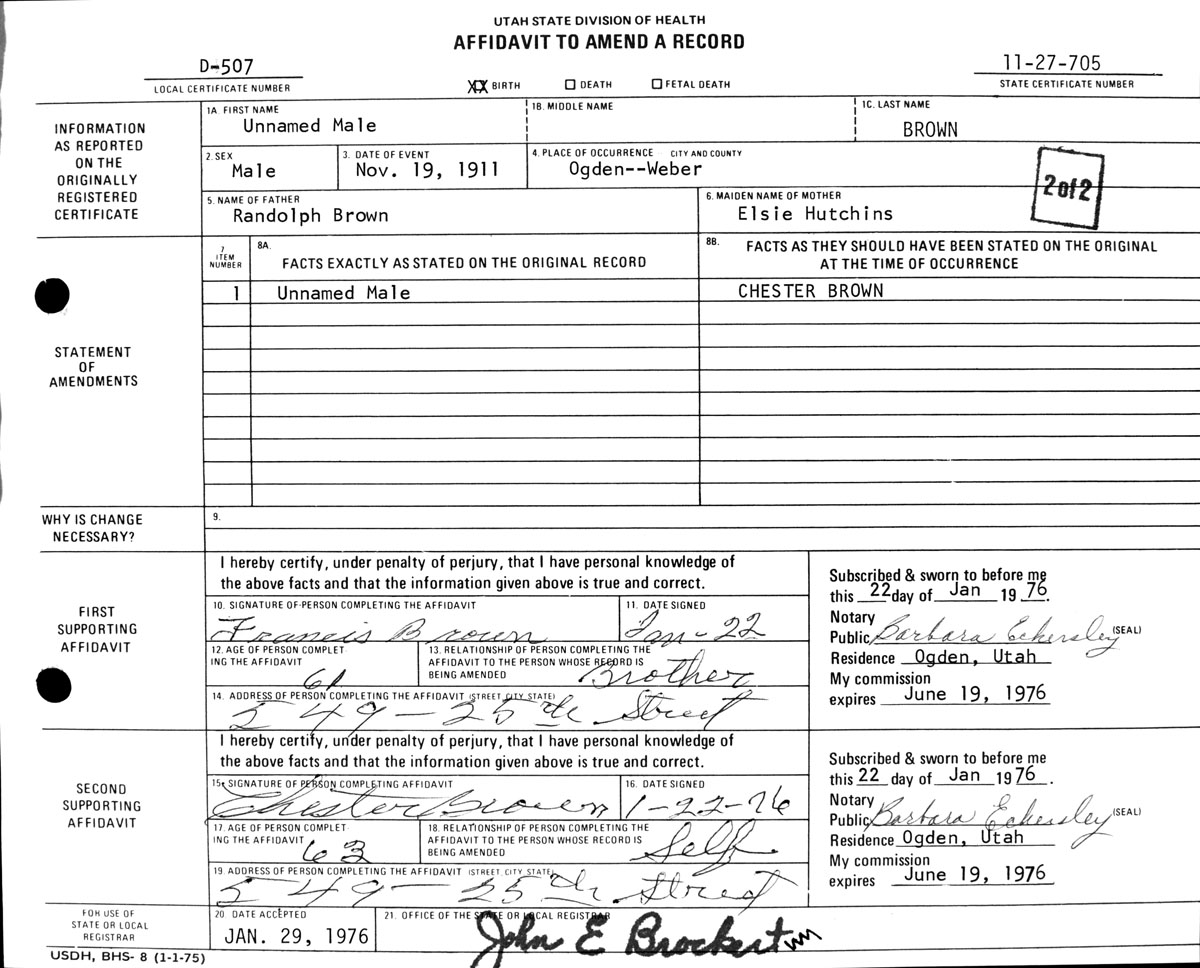 UTAH STATE DIVISION OF HEALTH
AFFIDAVIT TO AMEND A RECORD
D-507
LOCAL CERTIFICATE NUMBER
XX BIRTH ☐ DEATH ☐ FETAL DEATH
11-27-705
STATE CERTIFICATE NUMBER
INFORMATION
AS REPORTED
ON THE
ORIGINALLY
REGISTERED
CERTIFICATE
1A. FIRST NAME
Unnamed Male
1B. MIDDLE NAME
1C. LAST NAME
BROWN
2. SEX
Male
3. DATE OF EVENT
Nov. 19, 1911
4. PLACE OF OCCURRENCE CITY AND COUNTY
Ogden--Weber
2 of 2
5. NAME OF FATHER
Randolph Brown
6. MAIDEN NAME OF MOTHER
Elsie Hutchins
STATEMENT
OF
AMENDMENTS
7.
ITEM
NUMBER
8A.
FACTS EXACTLY AS STATED ON THE ORIGINAL RECORD
8B. FACTS AS THEY SHOULD HAVE BEEN STATED ON THE ORIGINAL
AT THE TIME OF OCCURRENCE
1 Unnamed Male CHESTER BROWN
WHY IS CHANGE
NECESSARY?
9.
FIRST
SUPPORTING
AFFIDAVIT
I hereby certify, under penalty of perjury, that I have personal knowledge of
the above facts and that the information given above is true and correct.
10. SIGNATURE OF PERSON COMPLETING THE AFFIDAVIT
Francis Brown
11. DATE SIGNED
Jan-22
12. AGE OF PERSON COMPLET
ING THE AFFIDAVIT
61
13. RELATIONSHIP OF PERSON COMPLETING THE
AFFIDAVIT TO THE PERSON WHOSE RECORD IS
BEING AMENDED
Brother
14. ADDRESS OF PERSON COMPLETING THE AFFIDAVIT (STREET, CITY, STATE)
549-25th Street
Subscribed & sworn to before me
this 22 day of Jan 19 76.
Notary
Public Barbara Eckersley (SEAL)
Residence Ogden, Utah
My commission
expires June 19, 1976
SECOND
SUPPORTING
AFFIDAVIT
I hereby certify, under penalty of perjury, that I have personal knowledge of
the above facts and that the information given above is true and correct.
15. SIGNATURE OF PERSON COMPLETING AFFIDAVIT
Chester Brown
16. DATE SIGNED
1-22-76
17. AGE OF PERSON COMPLET
ING THE AFFIDAVIT
63
18. RELATIONSHIP OF PERSON COMPLETING THE
AFFIDAVIT TO THE PERSON WHOSE RECORD IS
BEING AMENDED
Self
19. ADDRESS OF PERSON COMPLETING THE AFFIDAVIT (STREET, CITY, STATE)
549-25th Street
Subscribed & sworn to before me
this 22 day of Jan 1976.
Notary
Public Barbara Eckersley (SEAL)
Residence Ogden, Utah
My commission
expires June 19, 1976
FOR USE OF
STATE OR LOCAL
REGISTRAR
20. DATE ACCEPTED
JAN. 29, 1976
21. OFFICE OF THE STATE OR LOCAL REGISTRAR
John E Brockert
USDH, BHS- 8 (1-1-75)